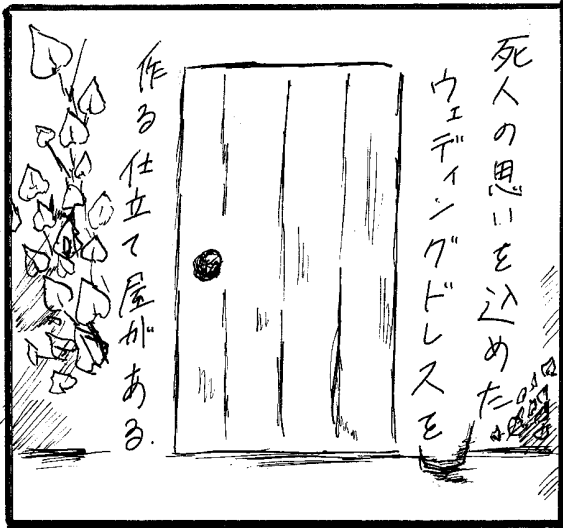 死人の思いを込めた
ウェディングドレスを
作る仕立て屋がある.